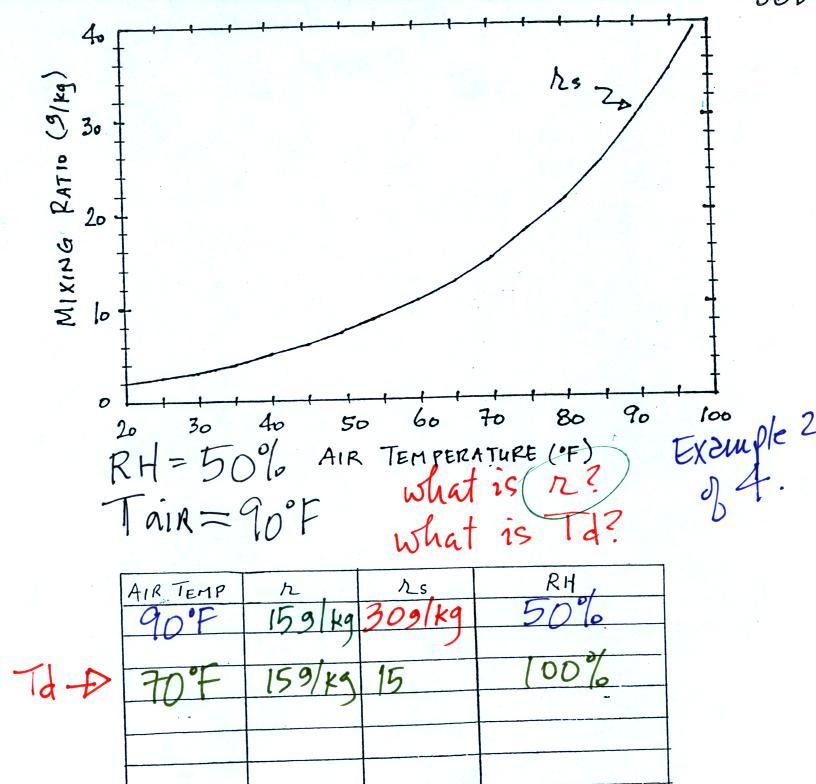 40
30
20
10
0
MIXING RATIO (g/kg)
rs
20 30 40 50 60 70 80 90 100
AIR TEMPERATURE (°F)
RH = 50%
TAIR = 90°F
what is r?
what is Td?
Example 2
of 4.
AIR TEMP r rs RH
90°F 15g/kg 30g/kg 50%
Td → 70°F 15g/kg 15 100%